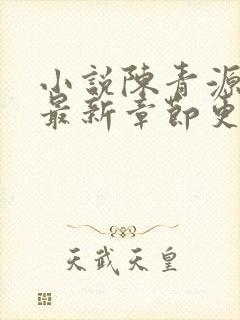 小說陳青源
最新章節更
天武天皇